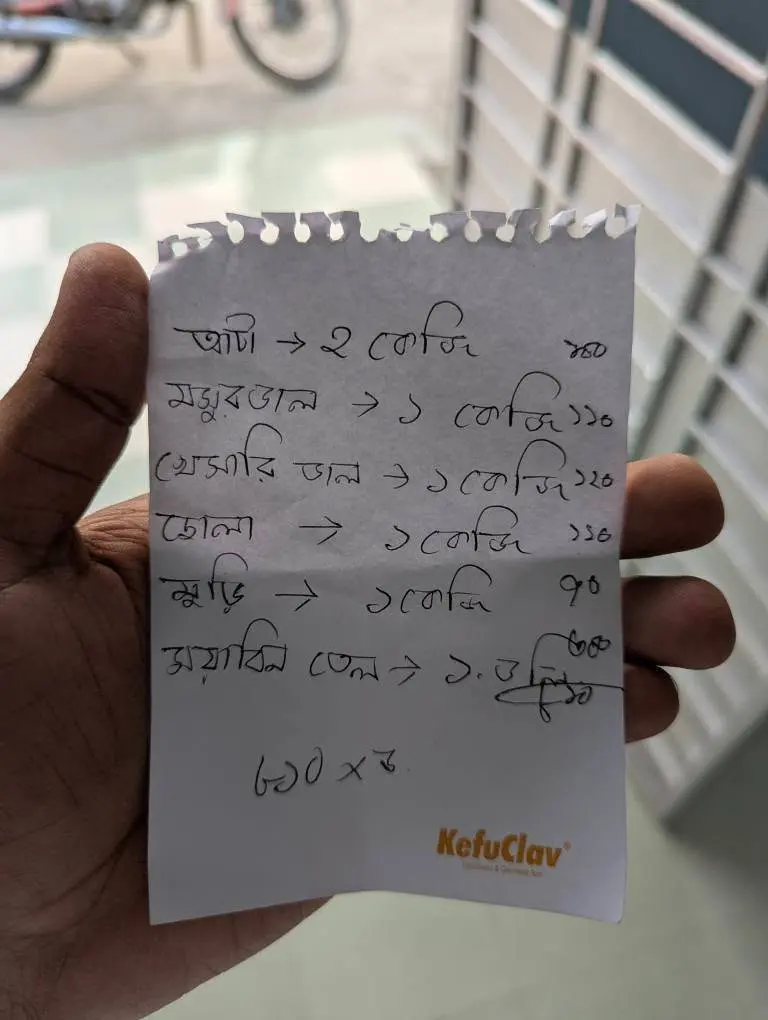 আটা → ২ কেজি ১০০
মসুরডাল → ১ কেজি ১১০
খেসারি ডাল → ১ কেজি ১২০
ছোলা → ১ কেজি ১১০
মুড়ি → ১ কেজি ৭০
সয়াবিন তেল → ১. ৩০০
৮১০
৮১০ × ৮
KefuClav®